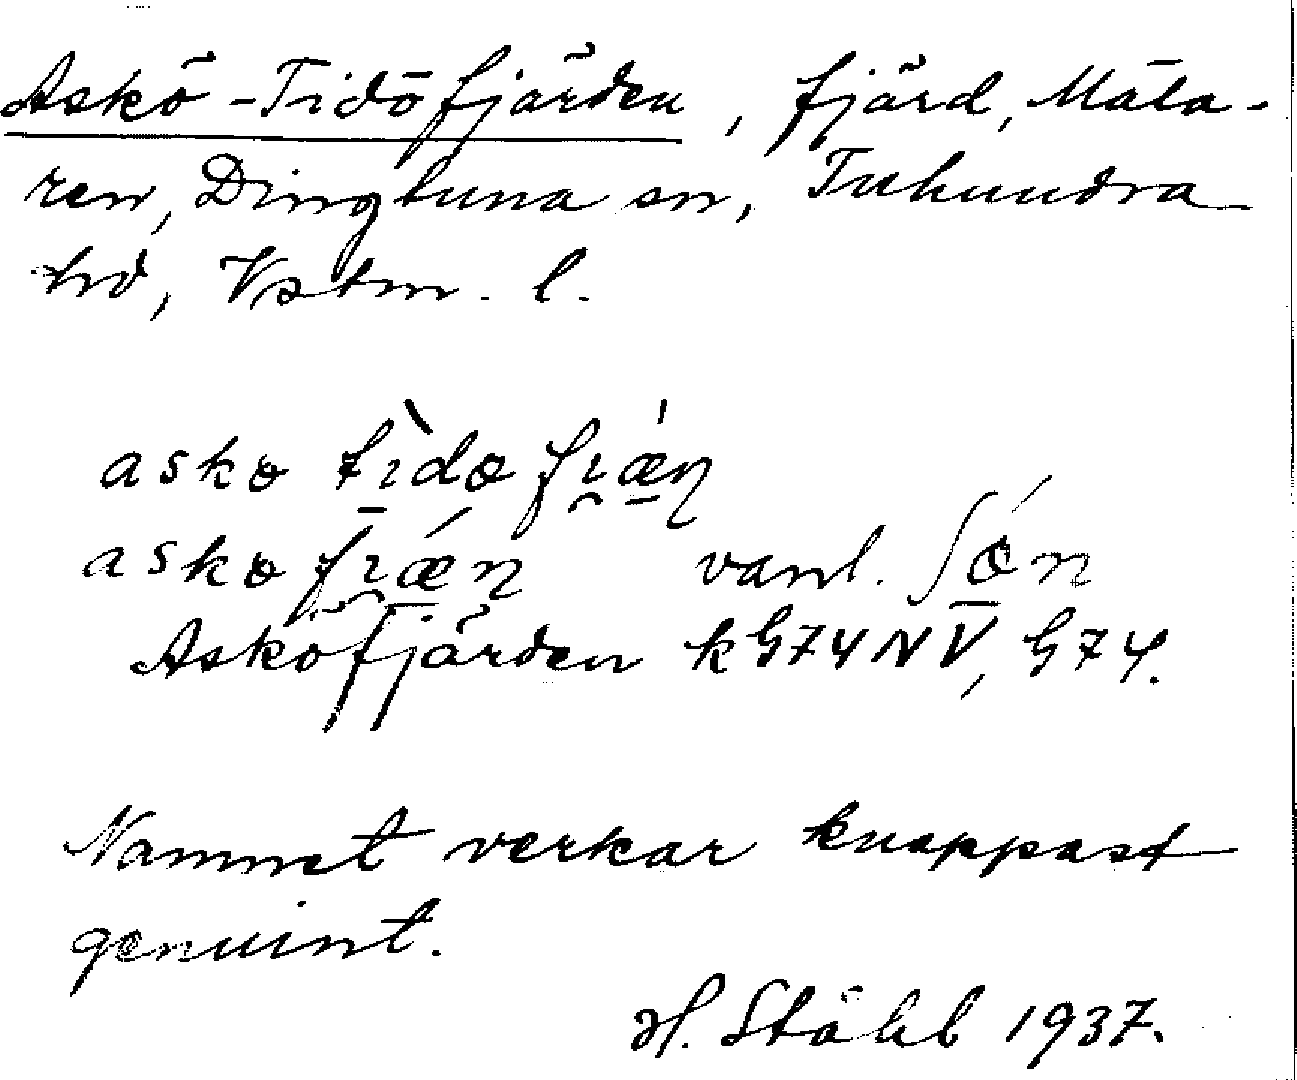 Askö-Tidöfjärden, fjärd, Mäla-
ren, Dingtuna sn, Tuhundra
hd, Vstm. l.
asko tìdo fi̯ǽ̲ɳ
asko fi̯ǽ̲n vanl. ʃǿ̲n
Asköfjärden kG74NV, G74.
Namnet verkar knappast
genuint.
H. Ståhl 1937.